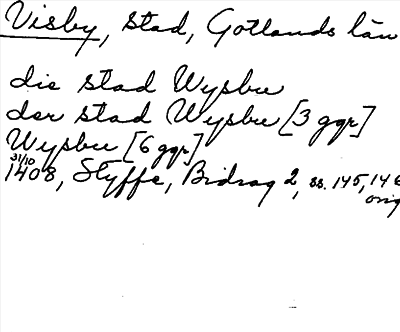 Visby, stad, Gotlands län
die stad Wysbu
der stad Wysbu [3 ggr]
Wysbu [6 ggr]
31/10
1408, Styffe, Bidrag 2, ss. 145, 146
orig